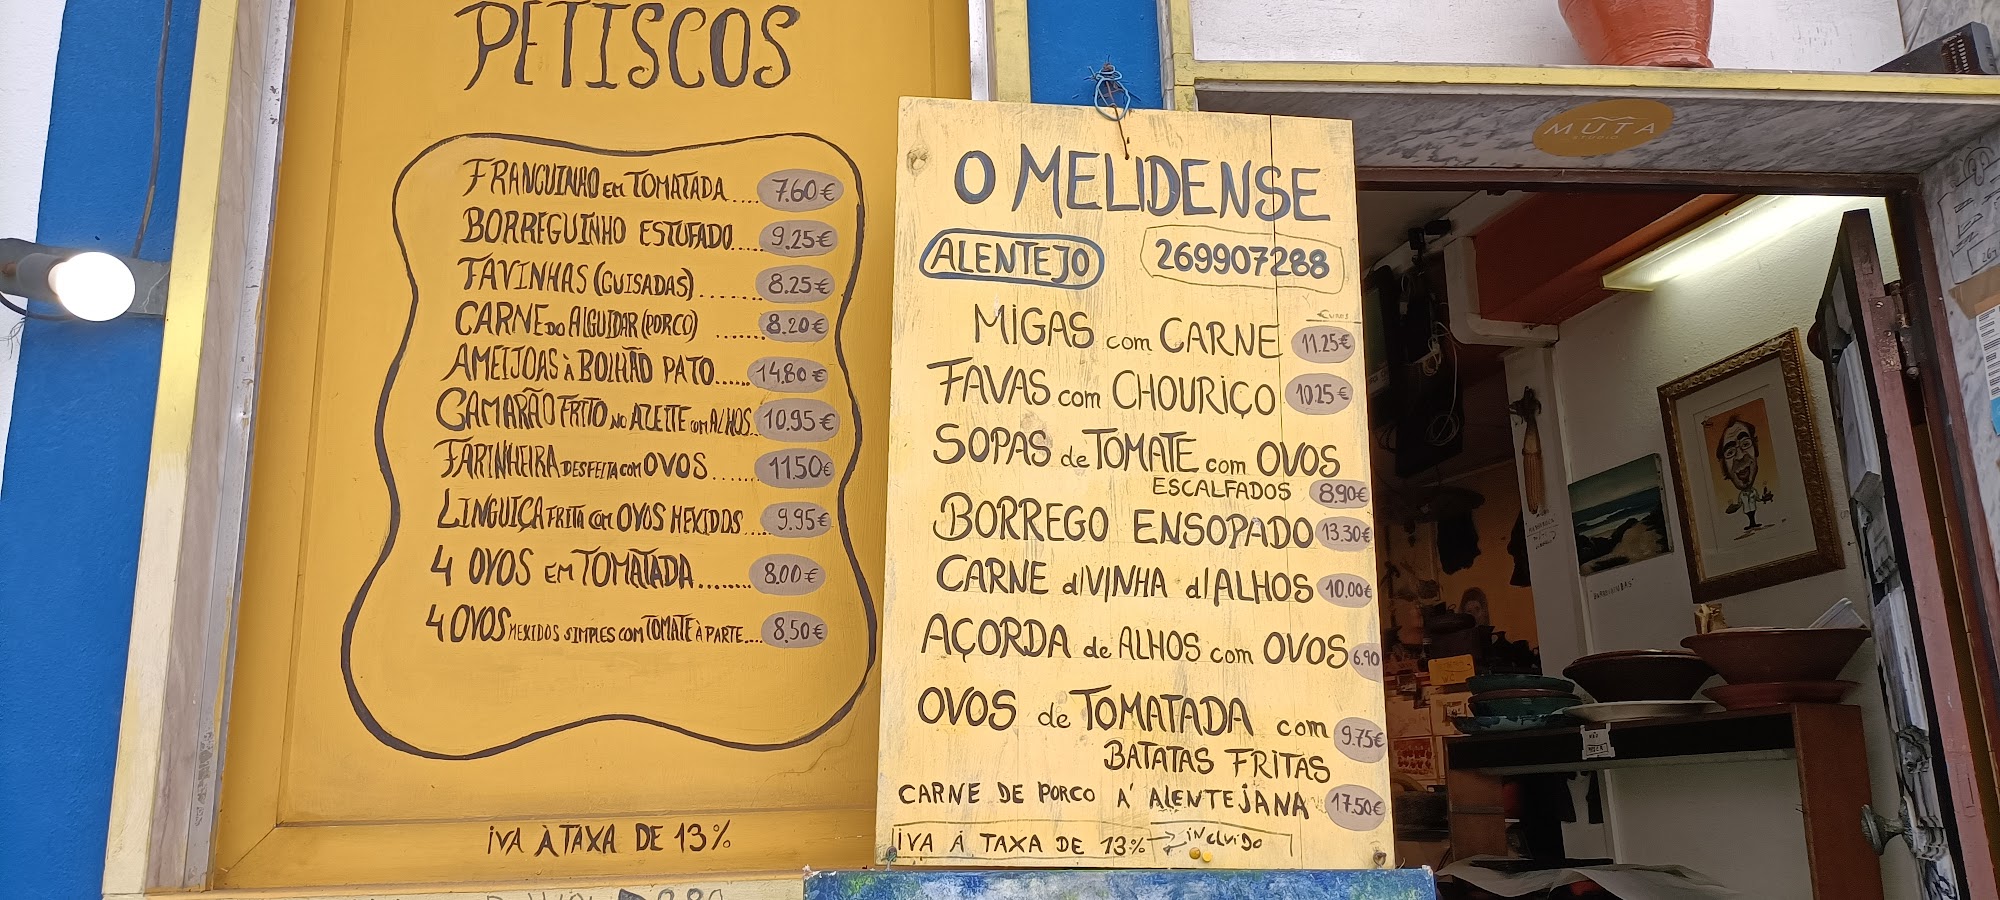 PETISCOS
FRANGUINHO EM TOMATADA.... 7.60€
BORREGUINHO ESTUFADO..... 9.25€
FAVINHAS (GUISADAS)....... 8.25€
CARNE DO ALGUIDAR (PORCO) ...... 8.20€
AMEIJOAS À BOLHÃO PATO...... 14.80€
CAMARÃO FRITO NO AZEITE COM ALHOS.. 10.95€
FARINHEIRA DESFEITA COM OVOS ....... 11.50€
LINGUIÇA FRITA COM OVOS MEXIDOS .... 9.95€
4 OVOS EM TOMATADA....... 8.00€
4 OVOS MEXIDOS SIMPLES COM TOMATE À PARTE.... 8.50€
IVA À TAXA DE 13%
O MELIDENSE
ALENTEJO
269907288
MIGAS com CARNE 11.25€
FAVAS com CHOURIÇO 10.25€
SOPAS de TOMATE com OVOS
ESCALFADOS 8.90€
BORREGO ENSOPADO 13.30€
CARNE d/VINHA d/ALHOS 10.00€
AÇORDA de ALHOS com OVOS 6.90
OVOS de TOMATADA com
BATATAS FRITAS 9.75€
CARNE DE PORCO A' ALENTEJANA 17.50€
IVA À TAXA DE 13% incluido
MUTA
STUDIO